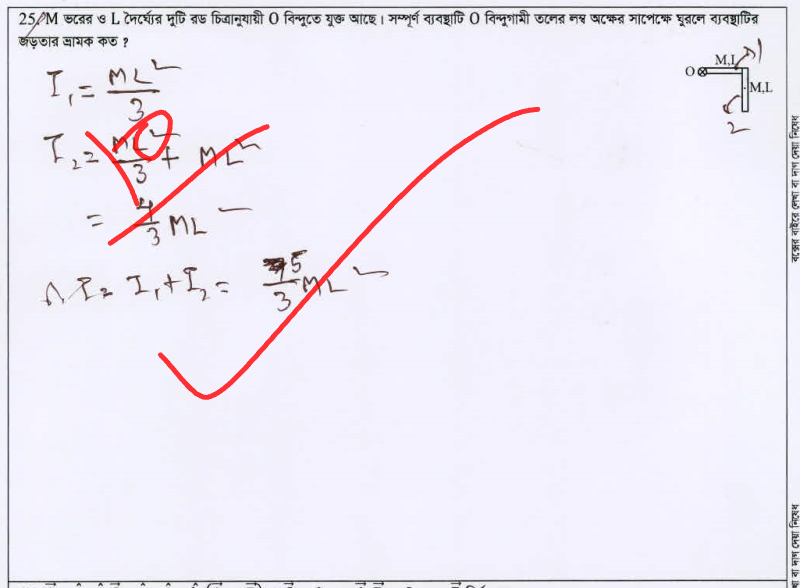 25. M ভরের ও L দৈর্ঘ্যের দুটি রড চিত্রানুযায়ী O বিন্দুতে যুক্ত আছে। সম্পূর্ণ ব্যবস্থাটি O বিন্দুগামী তলের লম্ব অক্ষের সাপেক্ষে ঘুরলে ব্যবস্থাটির
জড়তার ভ্রামক কত ?
M,L 1
O M,L
2
I₁ = ML²/3
I₂ = ML²/3 + ML²
= 4/3 ML²
∴ I = I₁ + I₂ = 5/3 ML²
বক্সের বাইরে লেখা বা দাগ দেয়া নিষেধ
বা দাগ দেয়া নিষেধ